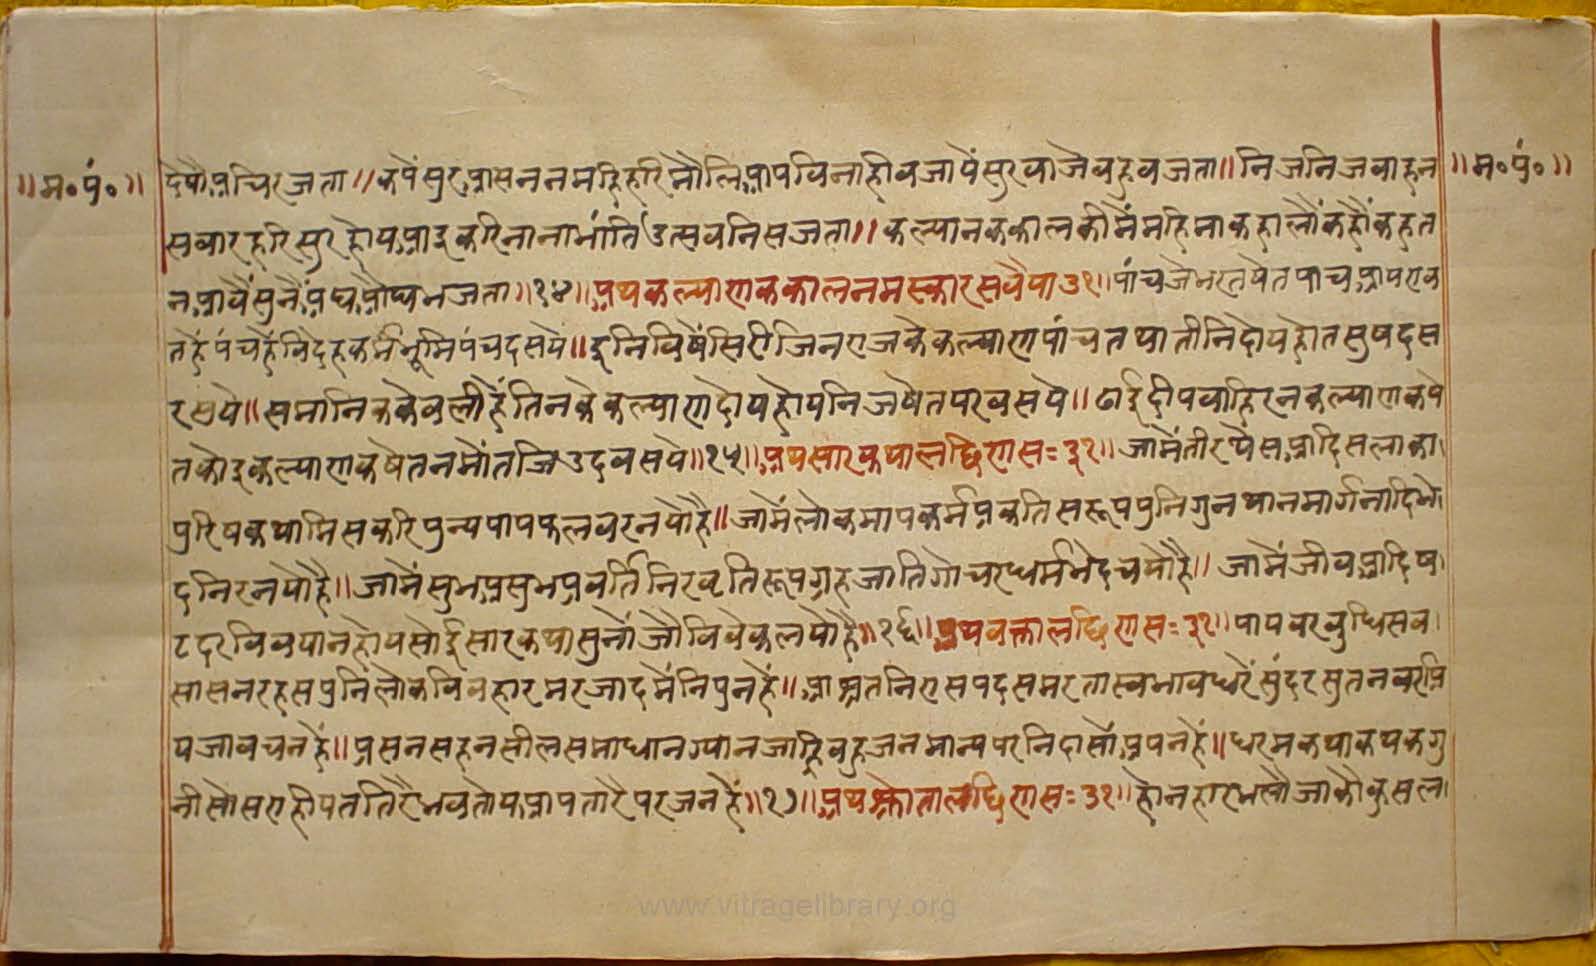 ॥म॰पु॰॥
देषौअचिरजता॥ कंपैं सुरआसन नमहि हरि मौलिआप विना ही वजायें सुरवाजे वहु वजता॥ निज निज वाहन
सवार हरि सुर होय आइ करि नाना भांति उत्सवनि सजता॥ कल्यानक काल की मैं महिमा कहालौं कहौं कहत
न आवै सुनैं अघ ओघ भजता॥१४॥ अथ कल्याणक काल नमस्कार सवैया ३१॥ पांच जे भरत षेत पाच अैरापरावक
त हैं पंच हैं विदेह कर्मभूमि पंचदसये॥ इनि विषैं सिरी जिनराज के कल्याण पांच तथा तीनि दोय होत सुषद स
रसुये॥ समानिक केवली हैं तिनके कल्याण दोय होय निज षेत परवसये॥ ढाई दीप वाहिर न कल्याणक षे
त कोइ कल्याणक षेत नमौं तजि उदवसये॥१५॥ अथ सार कथा लछिण स॰ ३१॥ जामें तीरथेस आदि सलाका
पुरिष कथा मिस करि पुन्य पाप फल वरनयो है॥ जामें लोक माप कर्म प्रकति सरूप पुनि गुनथान मार्गनादि भे
द निरनयो है॥ जामें सुभ असुभ प्रवर्ति निरवृति रूप ग्रह जाति गोचर धर्म भेद चयो है॥ जामें जीव आदि ष
ट दरवि वषान होय सोई सार कथा सुनों जौ विवेक लयो है॥१६॥ अथ वक्ता लछिण स॰ ३१॥ पाप वर वुधि सव
सासन रहस पुनि लोक विवहार मरजाद में निपुन हैं॥ आश्रत निरासपद समरता स्वभाव धरें सुंदर सुतन वर प्रि
य जा वचन हैं॥ प्रसन सहनसील समाधान ग्यान जाहि वहु जन मान्य पर निंदा सों अपन हैं॥ धरम कथा कथक गु
नी सो सराही पत तिरै भव तोय आप तारै पर जन हैं॥१७॥ अथ श्रोता लछिण स॰ ३१॥ होनहार भलौ जाकौ कुसल
॥म॰पु॰॥
www.vitragelibrary.org